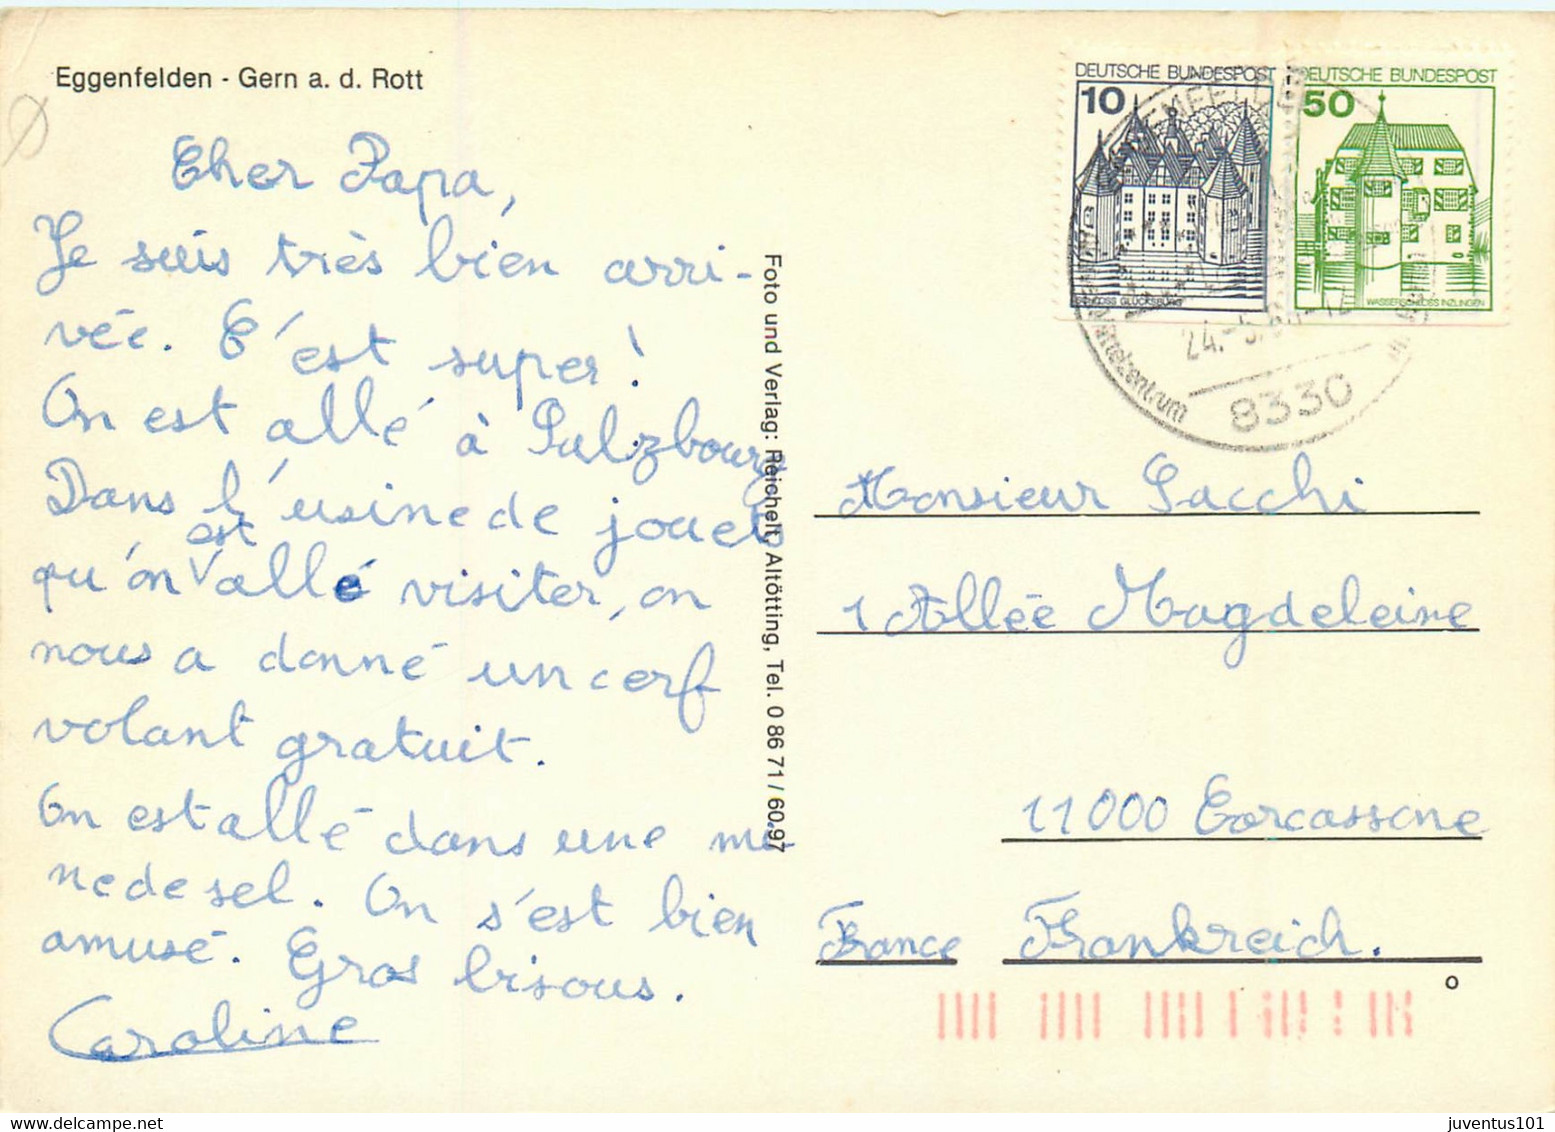 Eggenfelden - Gern a. d. Rott
Cher Papa,
Je suis très bien arri-
vée. C'est super !
On est allé à Salzbourg
Dans l'usine de jouets
qu'on est allé visiter, on
nous a donné un cerf
volant gratuit.
On est allé dans une mi
ne de sel. On s'est bien
amusé. Gros bisous.
Caroline
Foto und Verlag: Reichelt, Altötting, Tel. 0 86 71 / 60 97
DEUTSCHE BUNDESPOST
10
SCHLOSS GLÜCKSBURG
DEUTSCHE BUNDESPOST
50
WASSERSCHLOSS INZLINGEN
8330
Monsieur Sacchi
1 Allée Magdeleine
11000 Carcassone
France Frankreich.
juventus101